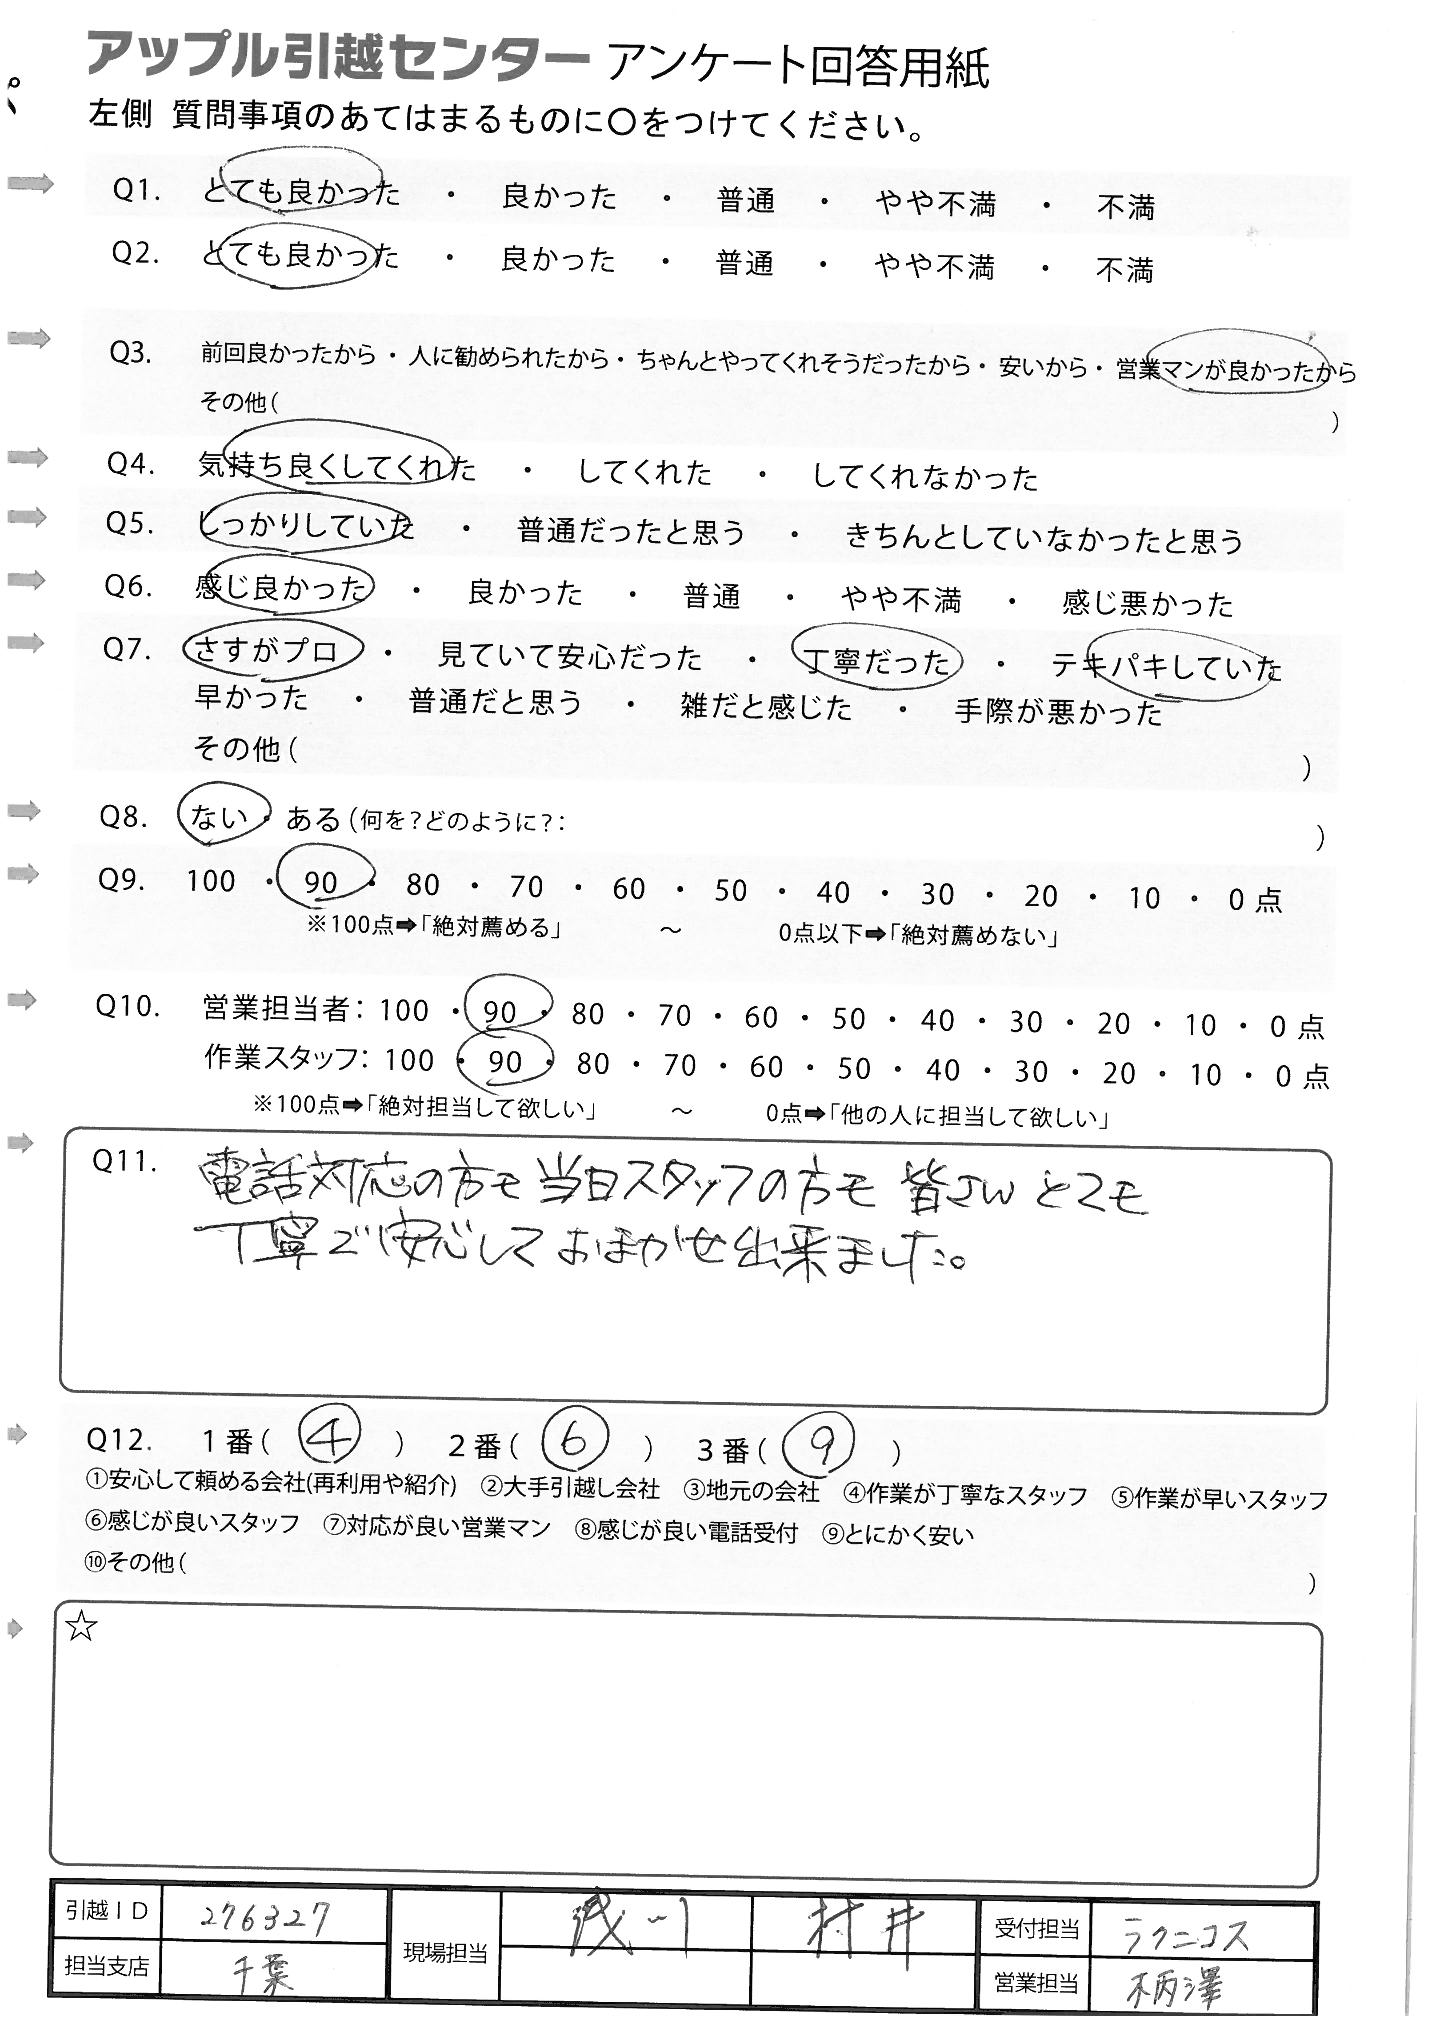 アップル引越センター アンケート回答用紙
左側 質問事項のあてはまるものに○をつけてください。
Q1. とても良かった ・ 良かった ・ 普通 ・ やや不満 ・ 不満
Q2. とても良かった ・ 良かった ・ 普通 ・ やや不満 ・ 不満
Q3. 前回良かったから・人に勧められたから・ちゃんとやってくれそうだったから・安いから・営業マンが良かったから
その他( )
Q4. 気持ち良くしてくれた ・ してくれた ・ してくれなかった
Q5. しっかりしていた ・ 普通だったと思う ・ きちんとしていなかったと思う
Q6. 感じ良かった ・ 良かった ・ 普通 ・ やや不満 ・ 感じ悪かった
Q7. さすがプロ ・ 見ていて安心だった ・ 丁寧だった ・ テキパキしていた
早かった ・ 普通だと思う ・ 雑だと感じた ・ 手際が悪かった
その他( )
Q8. ない・ある(何を?どのように?: )
Q9. 100 ・ 90 ・ 80 ・ 70 ・ 60 ・ 50 ・ 40 ・ 30 ・ 20 ・ 10 ・ 0点
※100点➡「絶対薦める」 ~ 0点以下➡「絶対薦めない」
Q10. 営業担当者: 100 ・ 90 ・ 80 ・ 70 ・ 60 ・ 50 ・ 40 ・ 30 ・ 20 ・ 10 ・ 0点
作業スタッフ: 100 ・ 90 ・ 80 ・ 70 ・ 60 ・ 50 ・ 40 ・ 30 ・ 20 ・ 10 ・ 0点
※100点➡「絶対担当して欲しい」 ~ 0点➡「他の人に担当して欲しい」
Q11. 電話対応の方モ当日スタッフの方モ 皆さん とても
丁寧で安心しておまかせ出来ました。
Q12. 1番( ④ ) 2番( ⑥ ) 3番( ⑨ )
①安心して頼める会社(再利用や紹介) ②大手引越し会社 ③地元の会社 ④作業が丁寧なスタッフ ⑤作業が早いスタッフ
⑥感じが良いスタッフ ⑦対応が良い営業マン ⑧感じが良い電話受付 ⑨とにかく安い
⑩その他( )
☆
引越ID 276327 現場担当 浅川 村井 受付担当 ラクニコス
担当支店 千葉 営業担当 柄澤